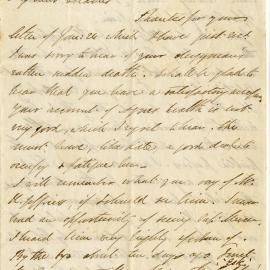 Thanks for yours
letter of June 24 which I have just rec'd
I was sorry to hear of your clergyman's
rather sudden death. I shall be glad to
hear that you have a satisfactory
Your account of Agnes health is not
very good, which I regret to hear. She
must have, like Kate, a good deal to
occupy & fatigue her.
I will remember what you say of Mr.
Jeffries, if I should see him. I never
had an opportunity of seeing Cap.
I heard him very highly spoken of.
By the bye about ten days ago